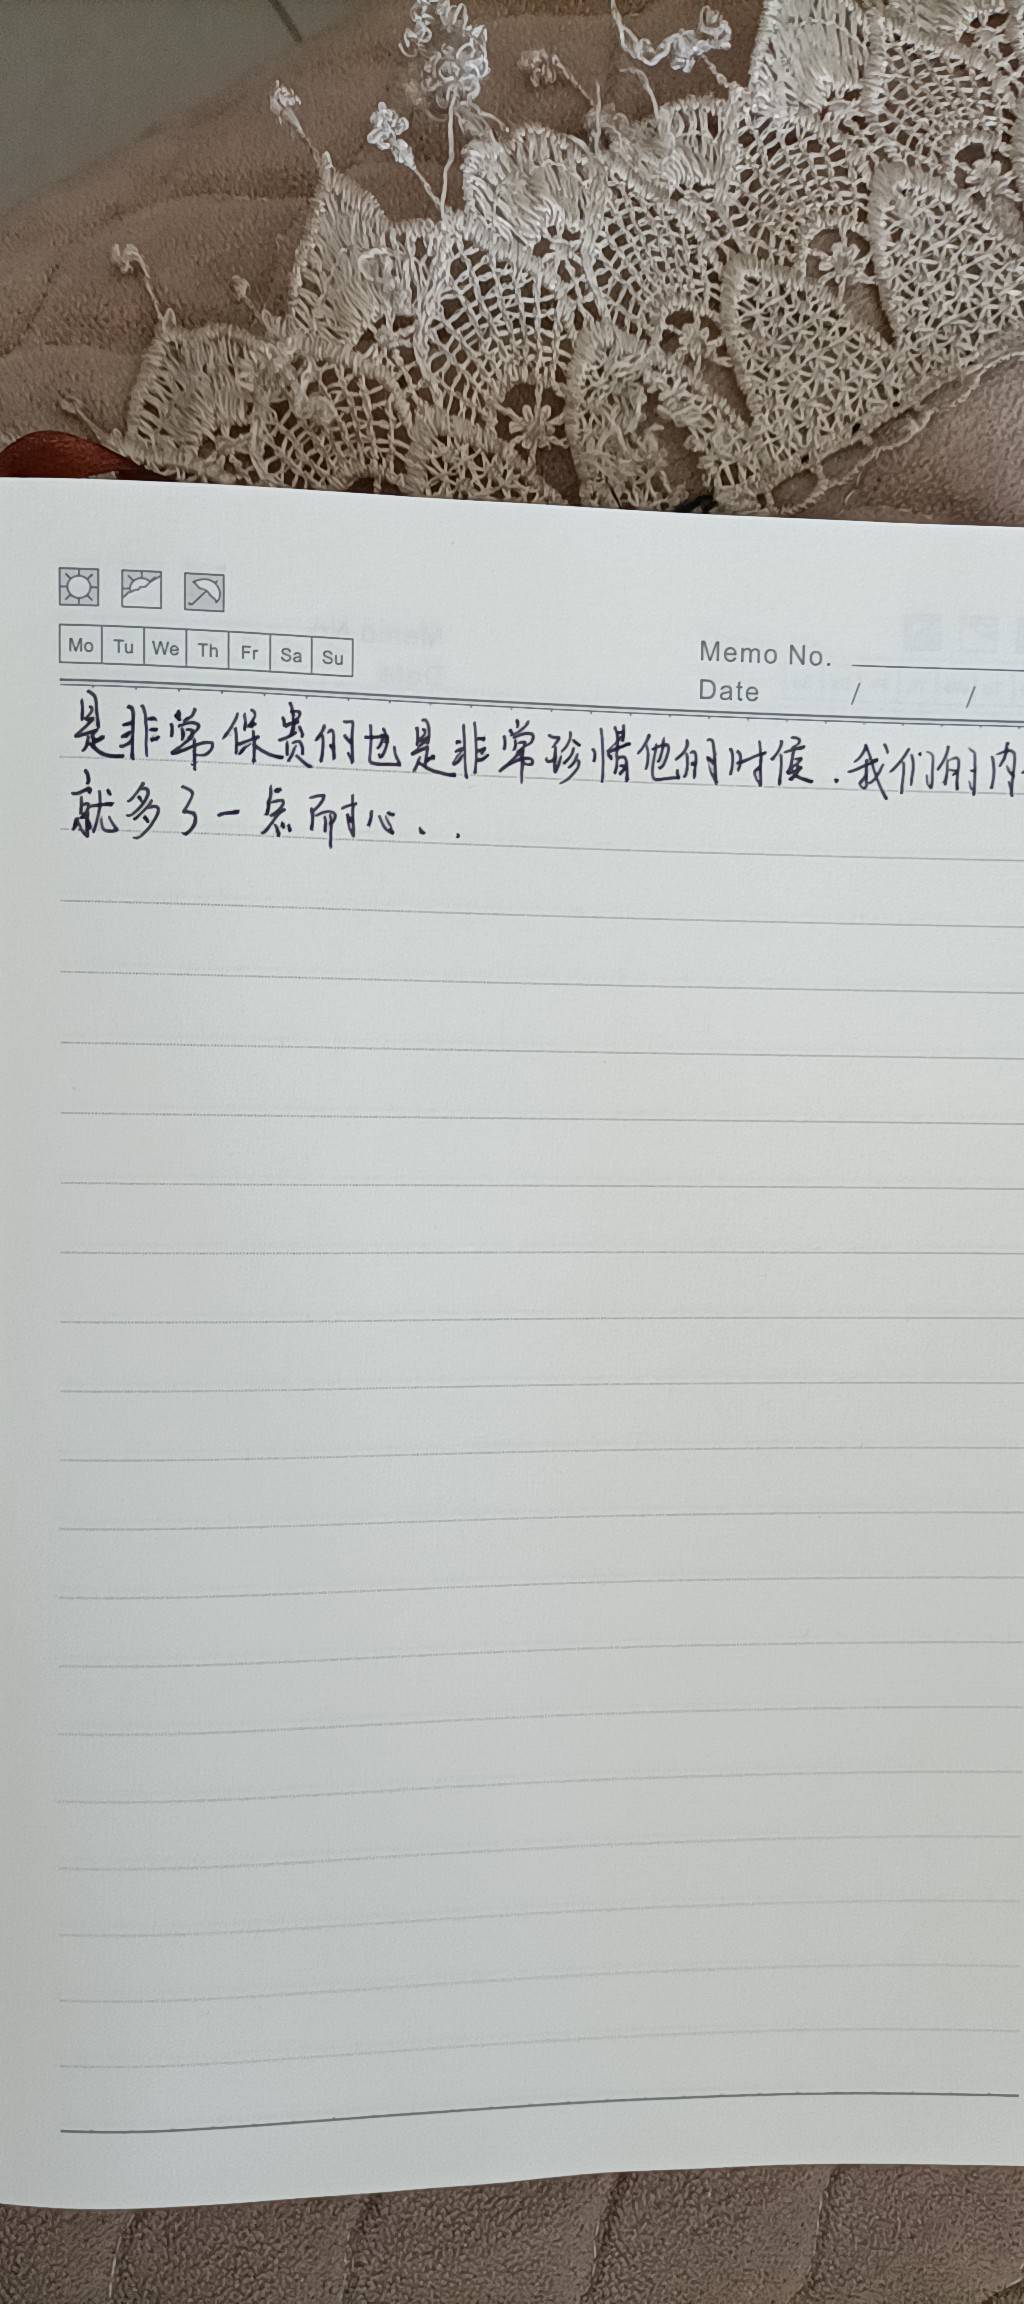 Mo Tu We Th Fr Sa Su
Memo No.
Date / /
是非常保贵的也是非常珍惜他的时候.我们的内
就多了一点耐心...